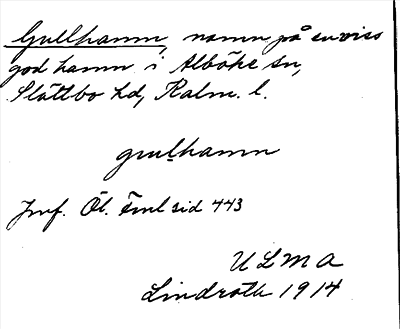 Gullhamn, namn på en viss
god hamn i Alböke sn,
Slättbo hd, Kalm. l.
gulhamn
Jmf. Öl. Fml sid 443
ULMA
Lindroth 1914